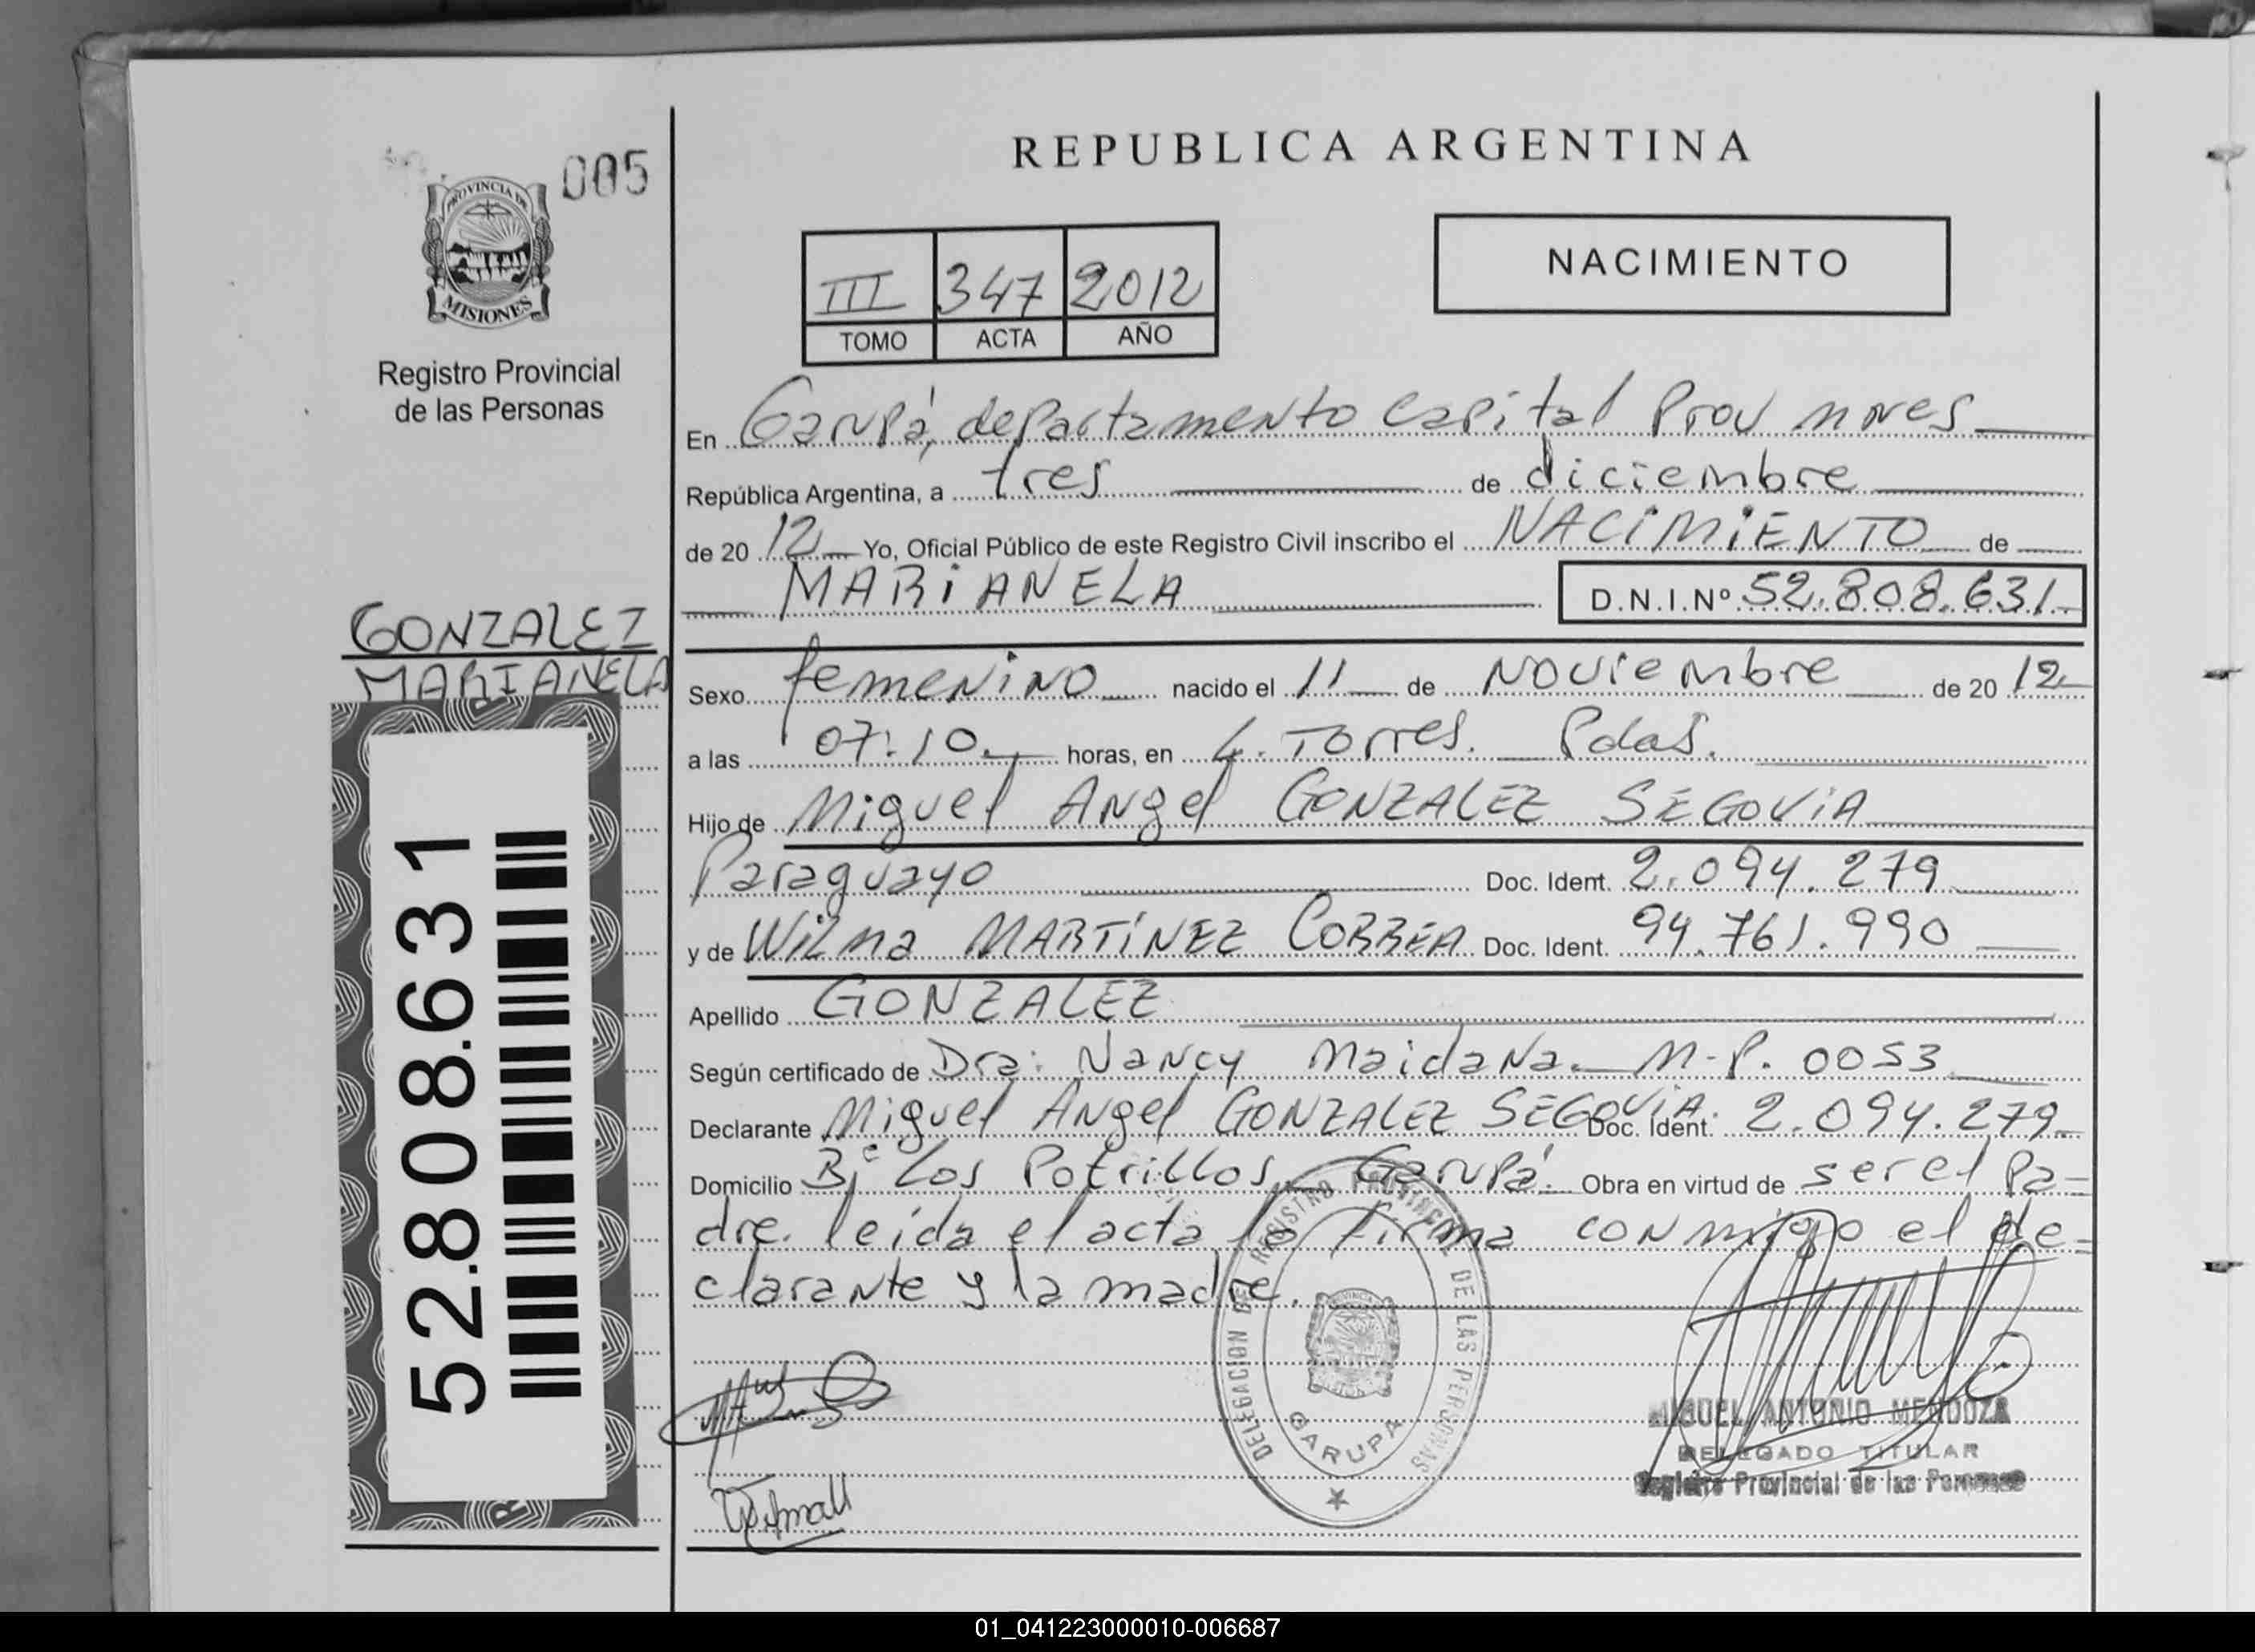 005
PROVINCIA DE
MISIONES
Registro Provincial
de las Personas
GONZALEZ
MARIANELA
52.808.631
REPUBLICA ARGENTINA
III 347 2012
TOMO ACTA AÑO
NACIMIENTO
En Garupá, departamento Capital Prov Mnes
República Argentina, a tres de diciembre
de 20 12 Yo, Oficial Público de este Registro Civil inscribo el NACIMIENTO de
MARIANELA D.N.I.Nº 52.808.631
Sexo femenino nacido el 11 de Noviembre de 20 12
a las 07:10 horas, en L. Torres. Pdas.
Hijo de Miguel Angel GONZALEZ SEGOVIA
Paraguayo Doc. Ident. 2.094.279
y de Wilma MARTÍNEZ CORREA Doc. Ident. 94.761.990
Apellido GONZALEZ
Según certificado de Dra: Nancy Maidana. M.P. 0053
Declarante Miguel Angel GONZALEZ SEGOVIA. Doc. Ident. 2.094.279
Domicilio Bº Los Potrillos, Garupá. Obra en virtud de ser el Pa-
dre. leida el acta la firma conmigo el de-
clarante y la madre.
DELEGACION DEL REGISTRO PROVINCIAL DE LAS PERSONAS
GARUPA
MIGUEL ANTONIO MENDOZA
DELEGADO TITULAR
Registro Provincial de las Personas
01_041223000010-006687